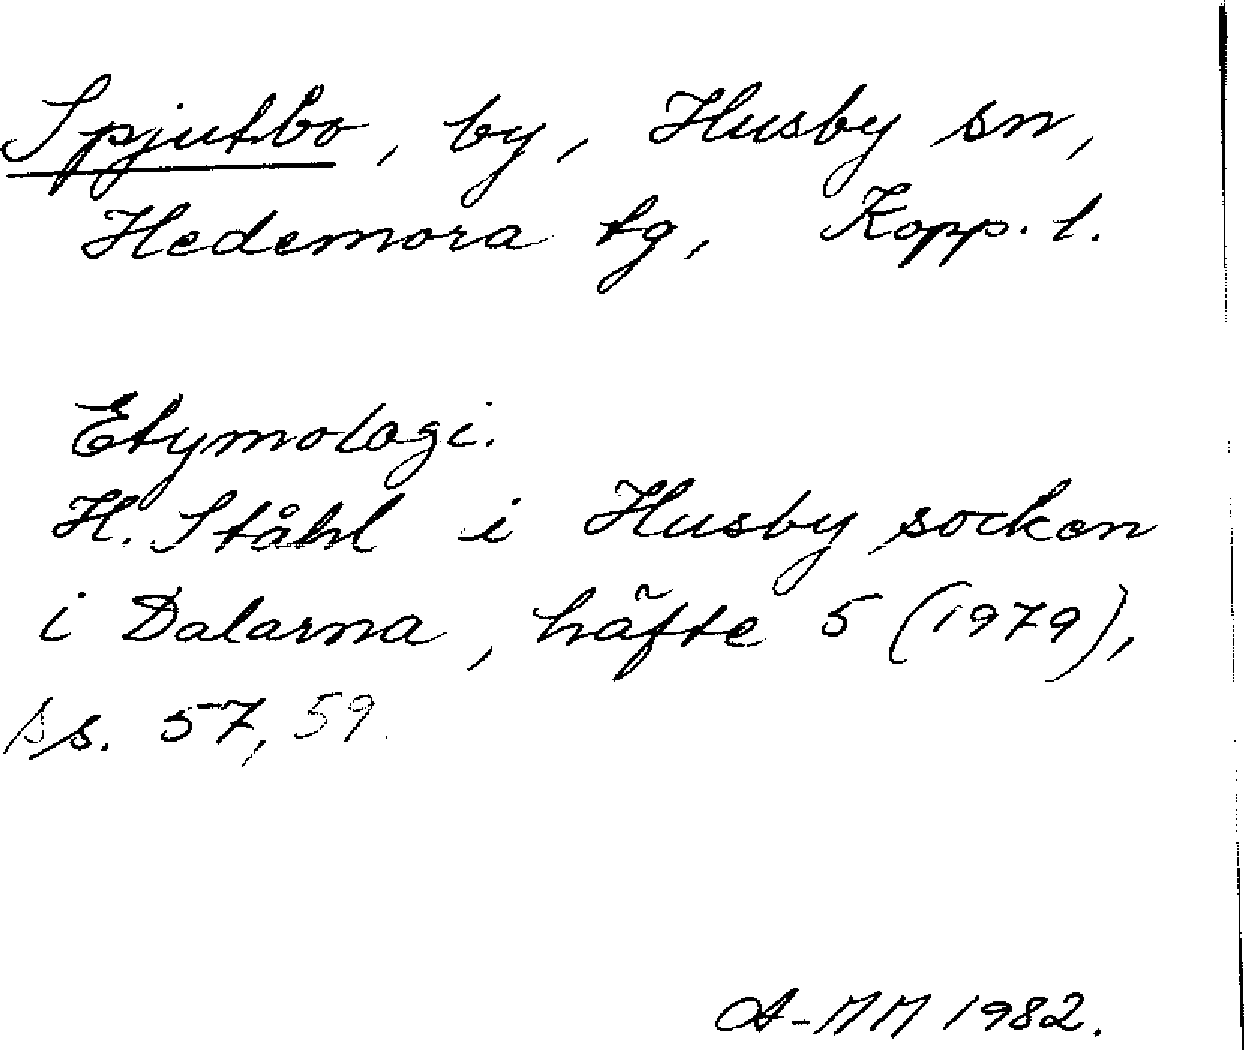 Spjutbo, by, Husby sn,
Hedemora tg, Kopp. l.
Etymologi.
H. Ståhl i Husby socken
i Dalarna, häfte 5 (1979),
ss. 57, 59.
A-MM 1982.